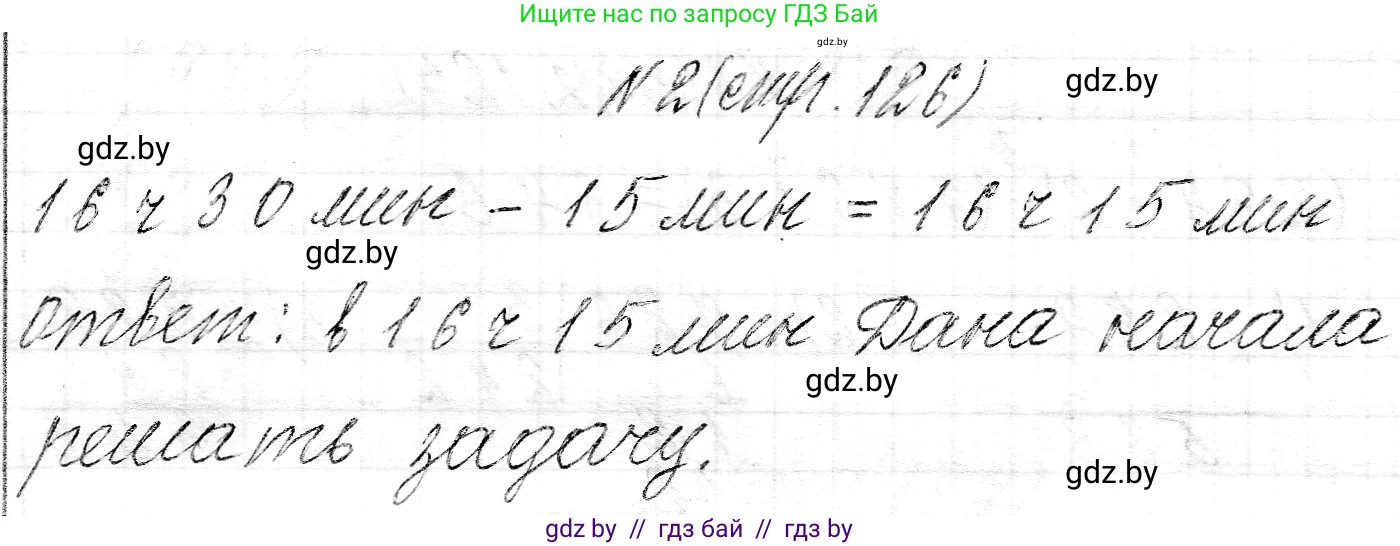 Ищите нас по запросу ГДЗ Бай
gdz.by
№ 2 (стр. 126)
gdz.by
gdz.by
16 ч 30 мин - 15 мин = 16 ч 15 мин
gdz.by
ответ: в 16 ч 15 мин Дана начала
gdz.by
решать задачу.
gdz.by
gdz by // гдз бай // гдз by